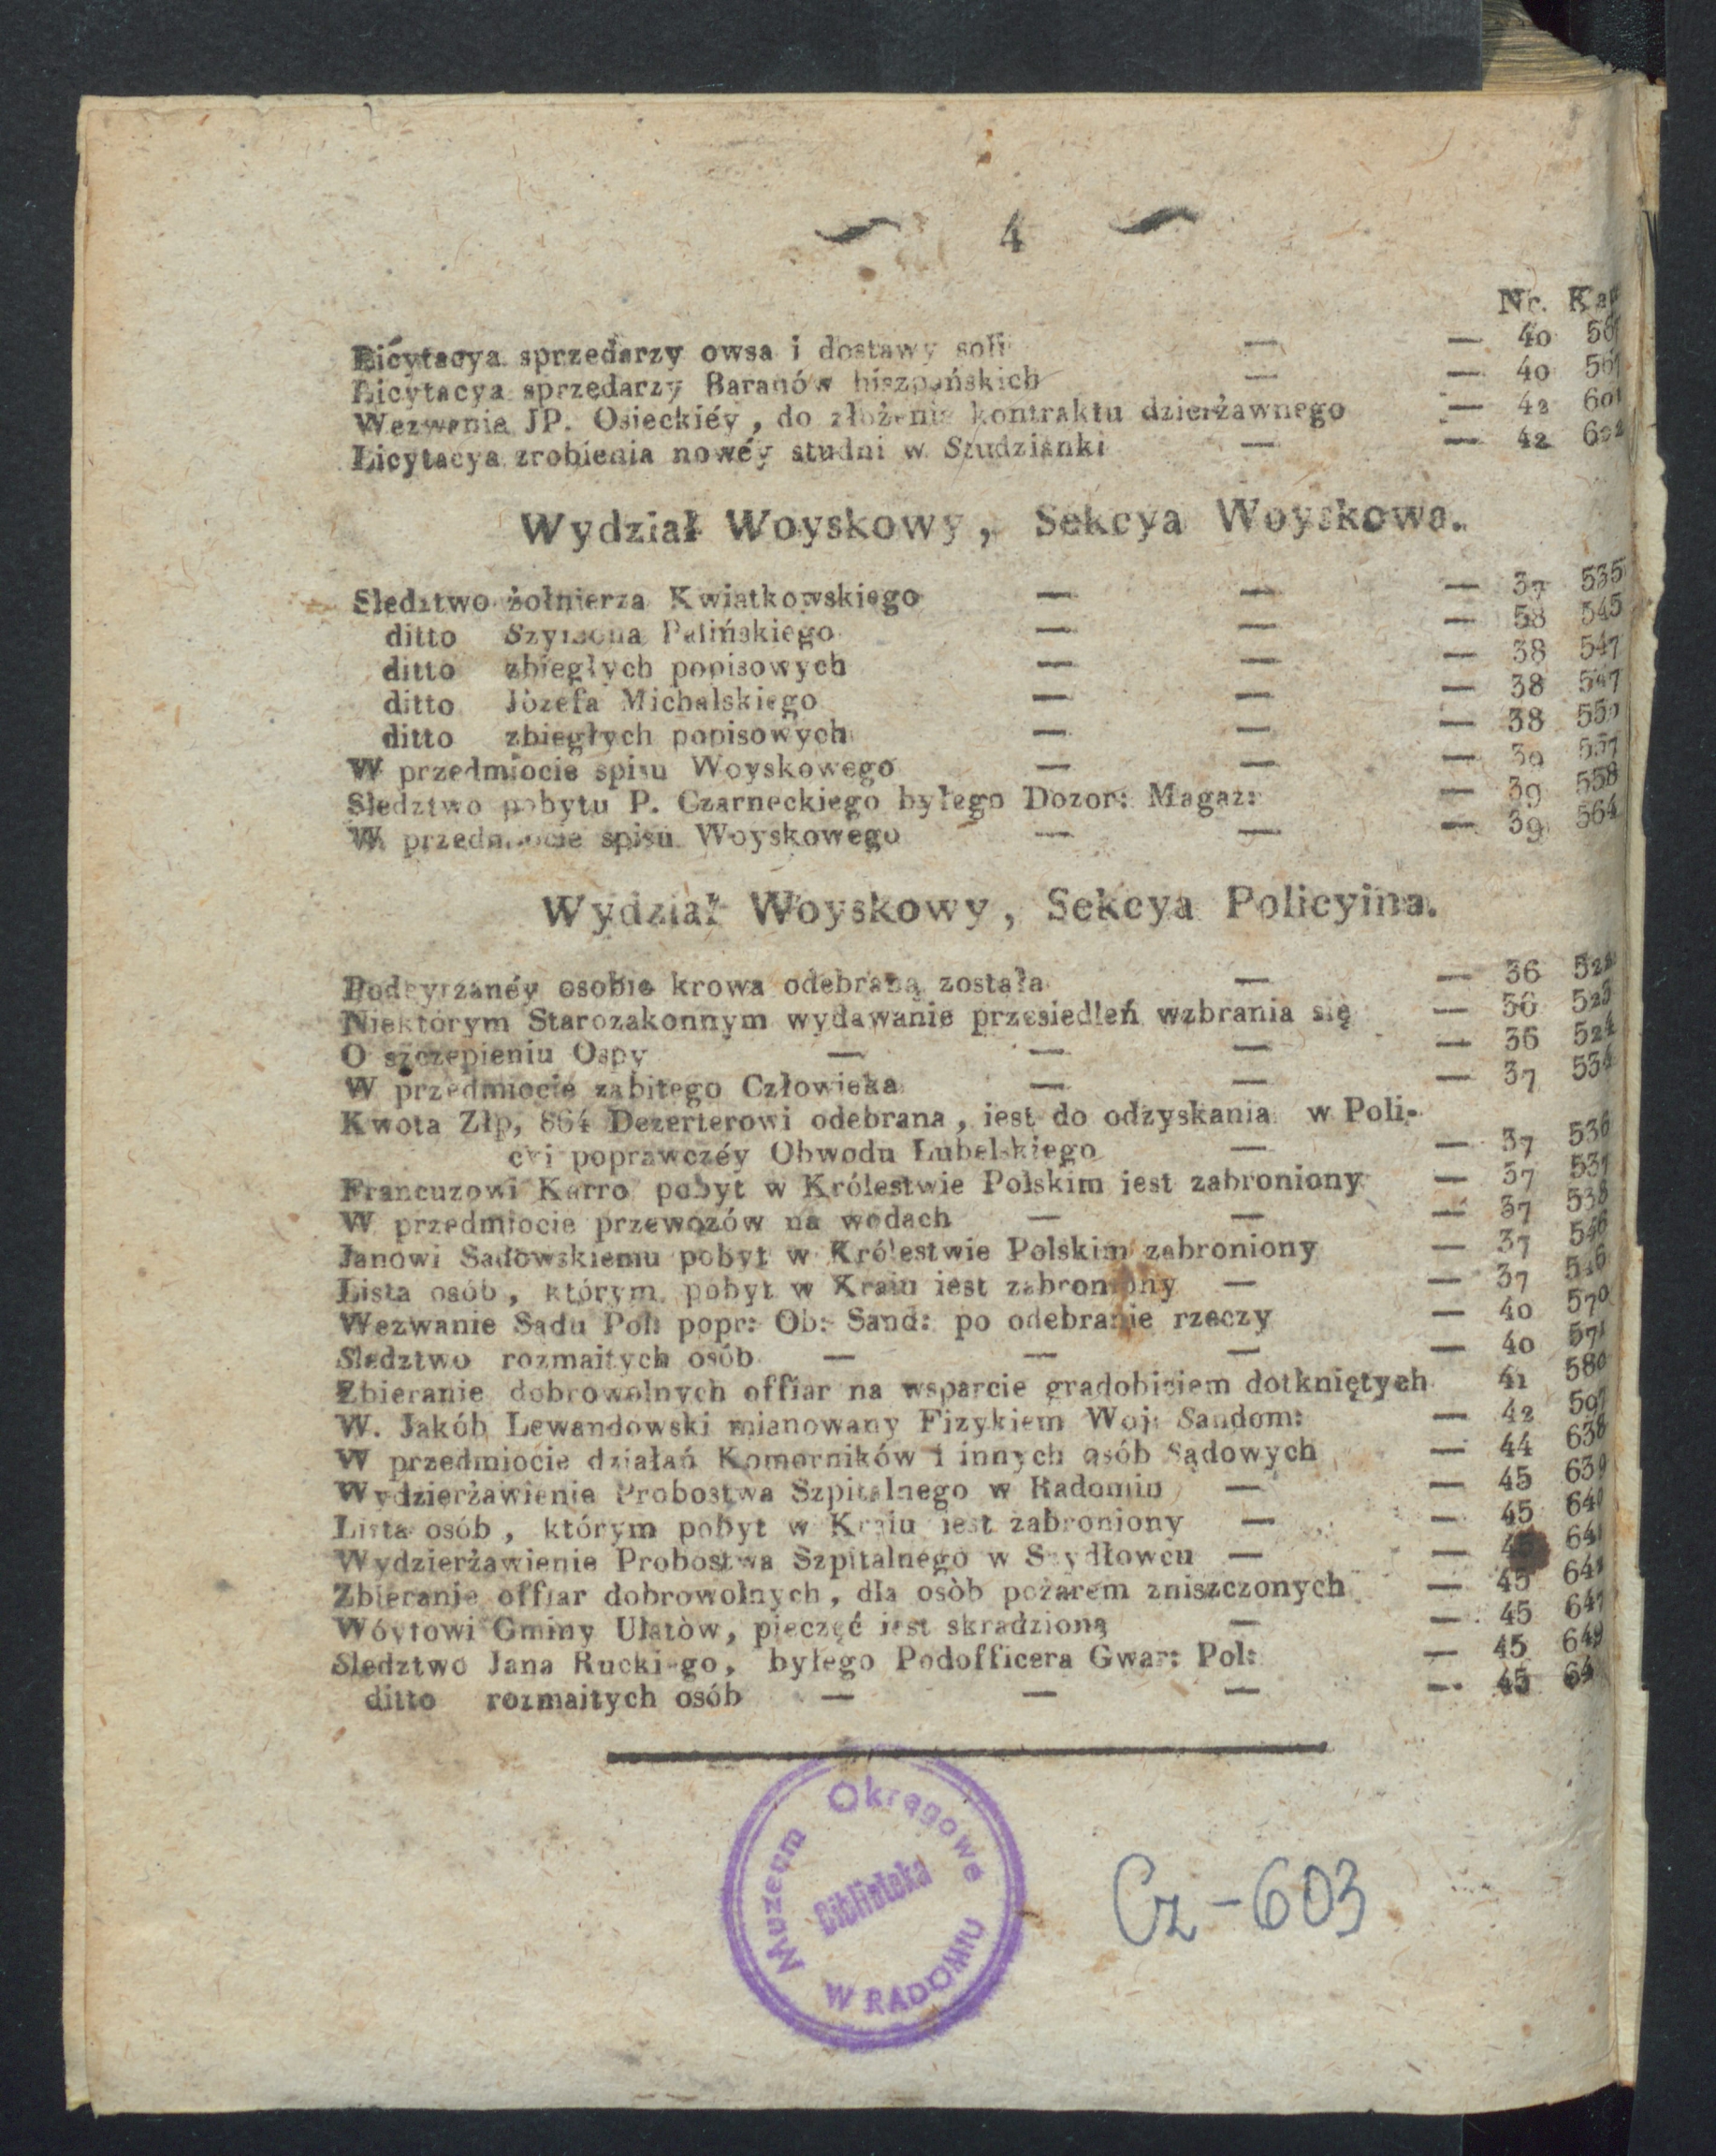 4
Nr.
Licytacya sprzedarzy owsa i dostawy soli — — 40
Licytacya sprzedarzy Baranów hiszpańskich — — 40
Wezwania JP. Osieckiéy, do złożenia kontraktu dzierżawnego — 42 601
Licytacya zrobienia nowéy studni w Studzianki — — 42 602
Wydział Woyskowy, Sekcya Woyskowa.
Sledztwo żołnierza Kwiatkowskiego — — — 37 535
ditto Szymona Palińskiego — — — 58 545
ditto zbiegłych popisowych — — — 38 547
ditto Józefa Michalskiego — — — 38 547
ditto zbiegłych popisowych — — — 38
W przedmiocie spisu Woyskowego — — — 39 557
Sledztwo pobytu P. Czarneckiego byłego Dozor: Magaz: — 39 558
W przedmiocie spisu Woyskowego — — — 39 564
Wydział Woyskowy, Sekcya Policyina.
Podeyrzanéy osobie krowa odebraną została — — 36
Niektórym Starozakonnym wydawanie przesiedleń wzbrania się — 36 523
O szczepieniu Ospy — — — — 36 524
W przedmiocie zabitego Człowieka — — — 37 534
Kwota Złp, 864 Dezerterowi odebrana, iest do odzyskania w Poli-
cyi poprawczéy Obwodu Lubelskiego — — 37 536
Francuzowi Karro pobyt w Królestwie Polskim iest zabroniony — 37 537
W przedmiocie przewozów na wodach — — — 37 538
Janowi Sadowskiemu pobyt w Królestwie Polskim zabroniony — 37
Lista osób, którym pobyt w Kraiu iest zabroniony — — 37
Wezwanie Sądu Pol: popr: Ob: Sand: po odebranie rzeczy — 40 570
Sledztwo rozmaitych osób — — — — 40 571
Zbieranie dobrowolnych offiar na wsparcie gradobiciem dotkniętych 41 580
W. Jakób Lewandowski mianowany Fizykiem Woj: Sandom: — 42 597
W przedmiocie działań Komorników i innych osób Sądowych — 44 638
Wydzierżawienie Probostwa Szpitalnego w Radomiu — — 45 639
Lista osób, którym pobyt w Kraiu iest zabroniony — — 45 640
Wydzierżawienie Probostwa Szpitalnego w Szydłowcu — — 641
Zbieranie offiar dobrowolnych, dla osòb pożarem zniszczonych — 45
Wóytowi Gminy Ułatòw, pieczęć iest skradzioną — — 45 647
Sledztwo Jana Ruckiego, byłego Podofficera Gwar: Pol: — 45 649
ditto rozmaitych osób — — — — 45
Muzeum Okręgowe
Biblioteka
W RADOMIU
Cz-603